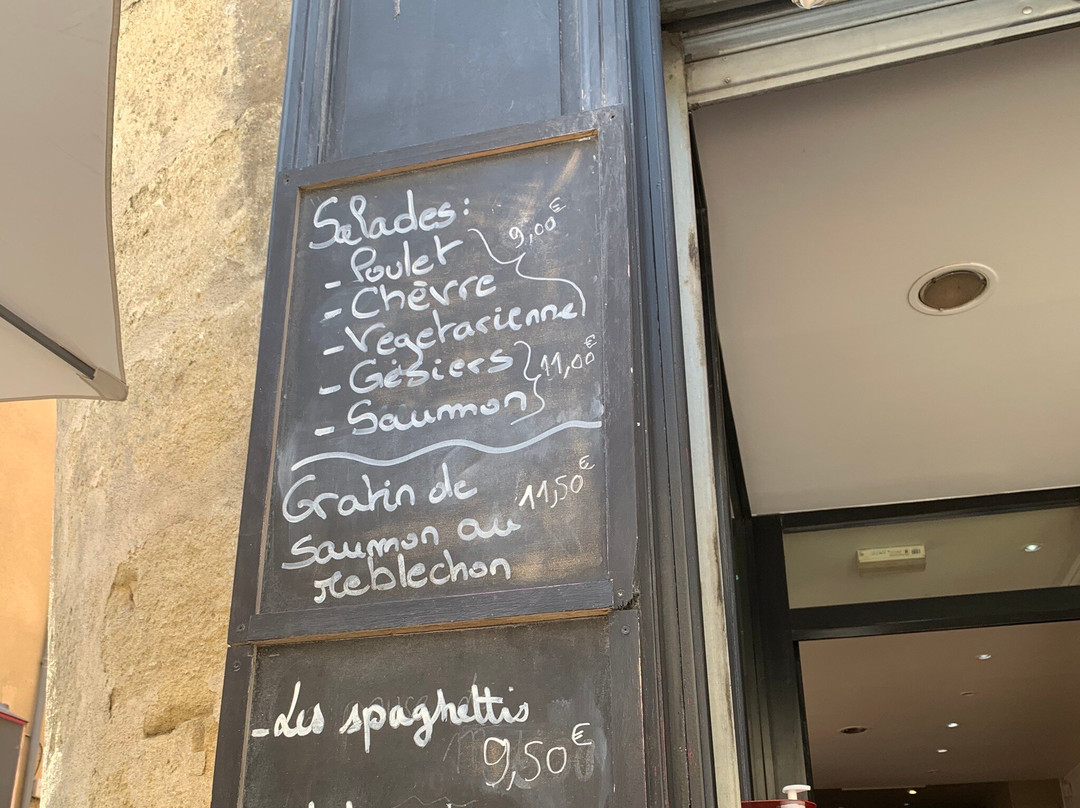 Salades:
- Poulet 9,00€
- Chèvre
- Vegetarienne
- Gésiers 11,00€
- Saumon
Gratin de 11,50€
saumon au
reblechon
- Les spaghettis
9,50€